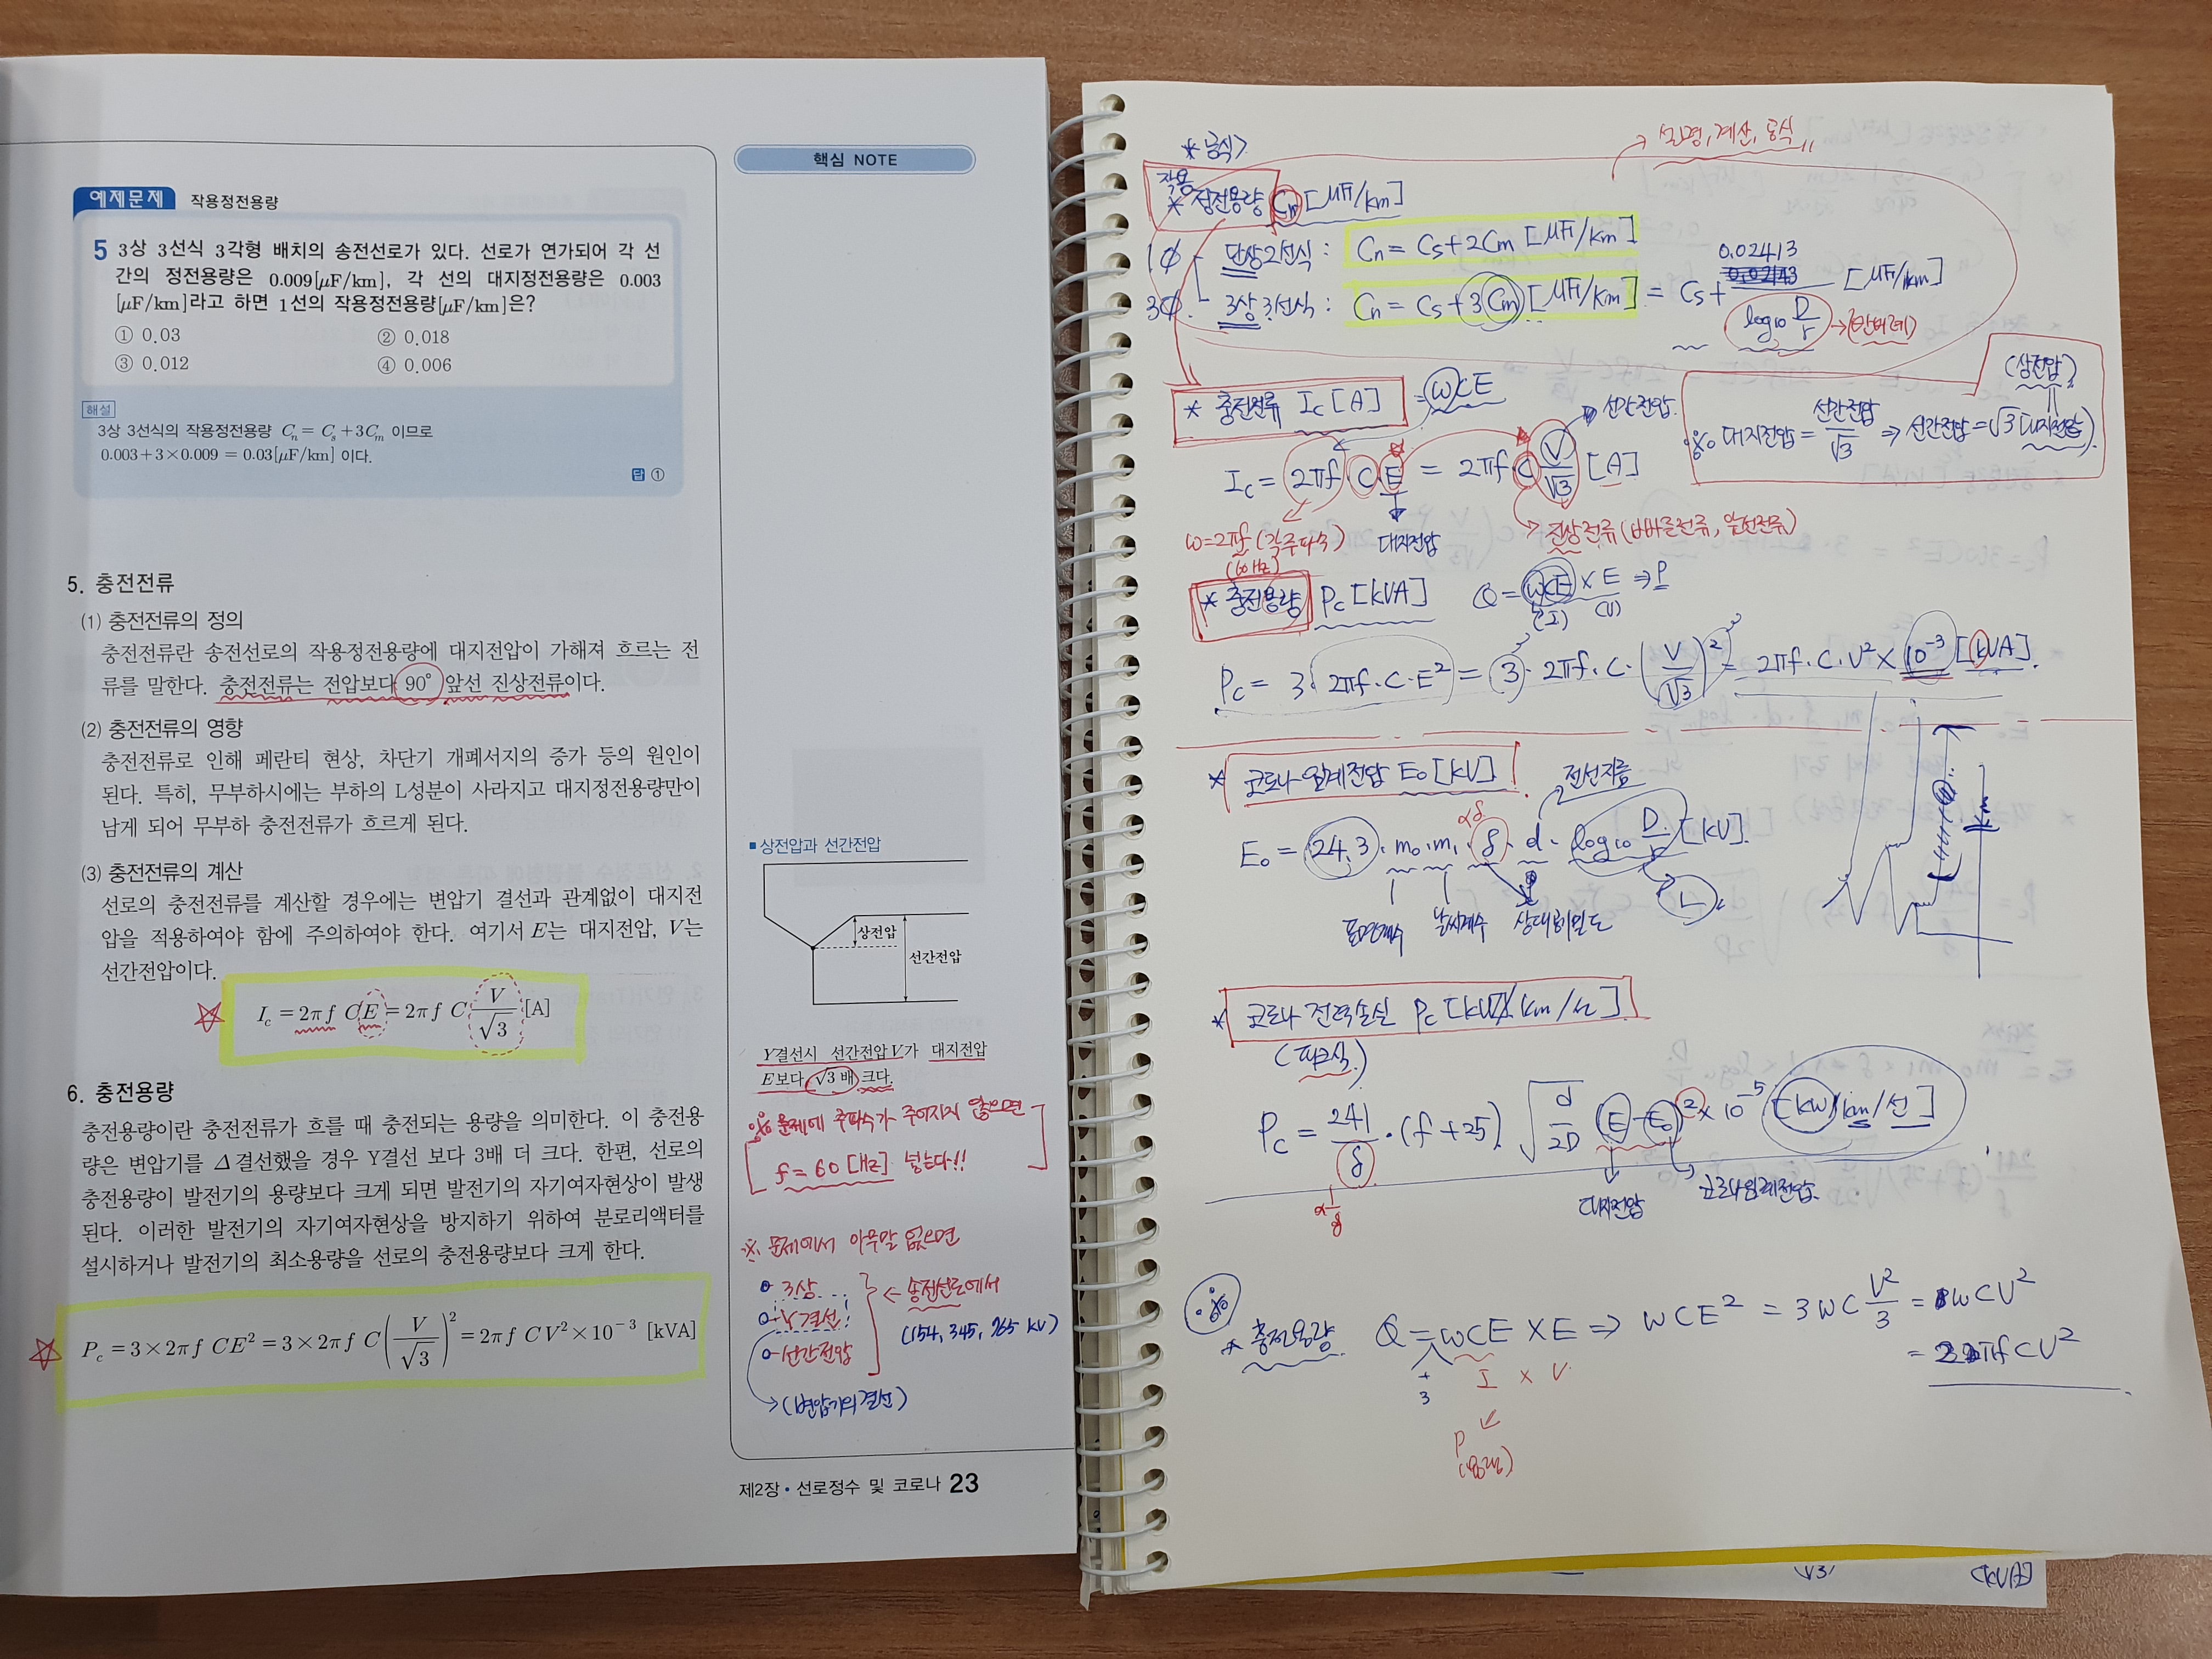 핵심 NOTE
예제문제 작용정전용량
5 3상 3선식 3각형 배치의 송전선로가 있다. 선로가 연가되어 각 선
간의 정전용량은 0.009[μF/km], 각 선의 대지정전용량은 0.003
[μF/km]라고 하면 1선의 작용정전용량[μF/km]은?
① 0.03 ② 0.018
③ 0.012 ④ 0.006
해설
3상 3선식의 작용정전용량 Cn = Cs + 3Cm 이므로
0.003+3×0.009 = 0.03[μF/km] 이다.
답 ①
5. 충전전류
(1) 충전전류의 정의
충전전류란 송전선로의 작용정전용량에 대지전압이 가해져 흐르는 전
류를 말한다. 충전전류는 전압보다 90° 앞선 진상전류이다.
(2) 충전전류의 영향
충전전류로 인해 페란티 현상, 차단기 개폐서지의 증가 등의 원인이
된다. 특히, 무부하시에는 부하의 L성분이 사라지고 대지정전용량만이
남게 되어 무부하 충전전류가 흐르게 된다.
(3) 충전전류의 계산
선로의 충전전류를 계산할 경우에는 변압기 결선과 관계없이 대지전
압을 적용하여야 함에 주의하여야 한다. 여기서 E는 대지전압, V는
선간전압이다.
Ic = 2πf CE = 2πf C V/√3 [A]
6. 충전용량
충전용량이란 충전전류가 흐를 때 충전되는 용량을 의미한다. 이 충전용
량은 변압기를 Δ결선했을 경우 Y결선 보다 3배 더 크다. 한편, 선로의
충전용량이 발전기의 용량보다 크게 되면 발전기의 자기여자현상이 발생
된다. 이러한 발전기의 자기여자현상을 방지하기 위하여 분로리액터를
설시하거나 발전기의 최소용량을 선로의 충전용량보다 크게 한다.
Pc = 3×2πf CE² = 3×2πf C (V/√3)² = 2πf CV²×10⁻³ [kVA]
■ 상전압과 선간전압
상전압
선간전압
Y결선시 선간전압V가 대지전압
E보다 √3배 크다.
※ 문제에 주파수가 주어지지 않으면
f = 60 [Hz] 넣는다!!
※ 문제에서 아무말 없으면
3상
Y결선
선간전압
← 송전선로에서
(154, 345, 765 kV)
→ (변압기의 결선)
제2장 • 선로정수 및 코로나 23
* 공식>
→ 설명, 계산, 공식
작용
* 정전용량 Cn [μF/km]
1∅ 단상2선식 : Cn = Cs + 2Cm [μF/km]
3∅ 3상 3선식 : Cn = Cs + 3Cm [μF/km] = Cs + 0.02413 / log10 D/r [μF/km]
→ (반비례)
* 충전전류 Ic [A] = ωCE
Ic = 2πf · C · E = 2πf · C V/√3 [A]
선간전압
(상전압)
※ 대지전압 = 선간전압/√3 ⇒ 선간전압 = √3 대지전압
ω = 2πf (각주파수)
(60Hz)
대지전압
→ 진상전류 (빠른전류, 앞선전류)
* 충전용량 Pc [kVA] Q = ωCE × E ⇒ P
(I) (V)
Pc = 3 · 2πf · C · E² = 3 · 2πf · C · (V/√3)² = 2πf · C · V² × 10⁻³ [kVA].
* 코로나 임계전압 E0 [kV]
전선지름
αδ
E0 = 24.3 · m0 · m1 · δ · d · log10 D/r [kV].
표면계수 날씨계수 상대공기밀도 L
* 코로나 전력손실 Pc [kW/km/선]
(피크식)
Pc = 241/δ · (f+25) √d/2D (E−E0)² × 10⁻⁵ [kW/km/선]
α 1/δ
대지전압 코로나임계전압
※
* 충전용량 Q = ωCE × E ⇒ ωCE² = 3ωC V²/3 = ωCV²
3 I × V = 2πfCV²
P
(용량)
[kVA]